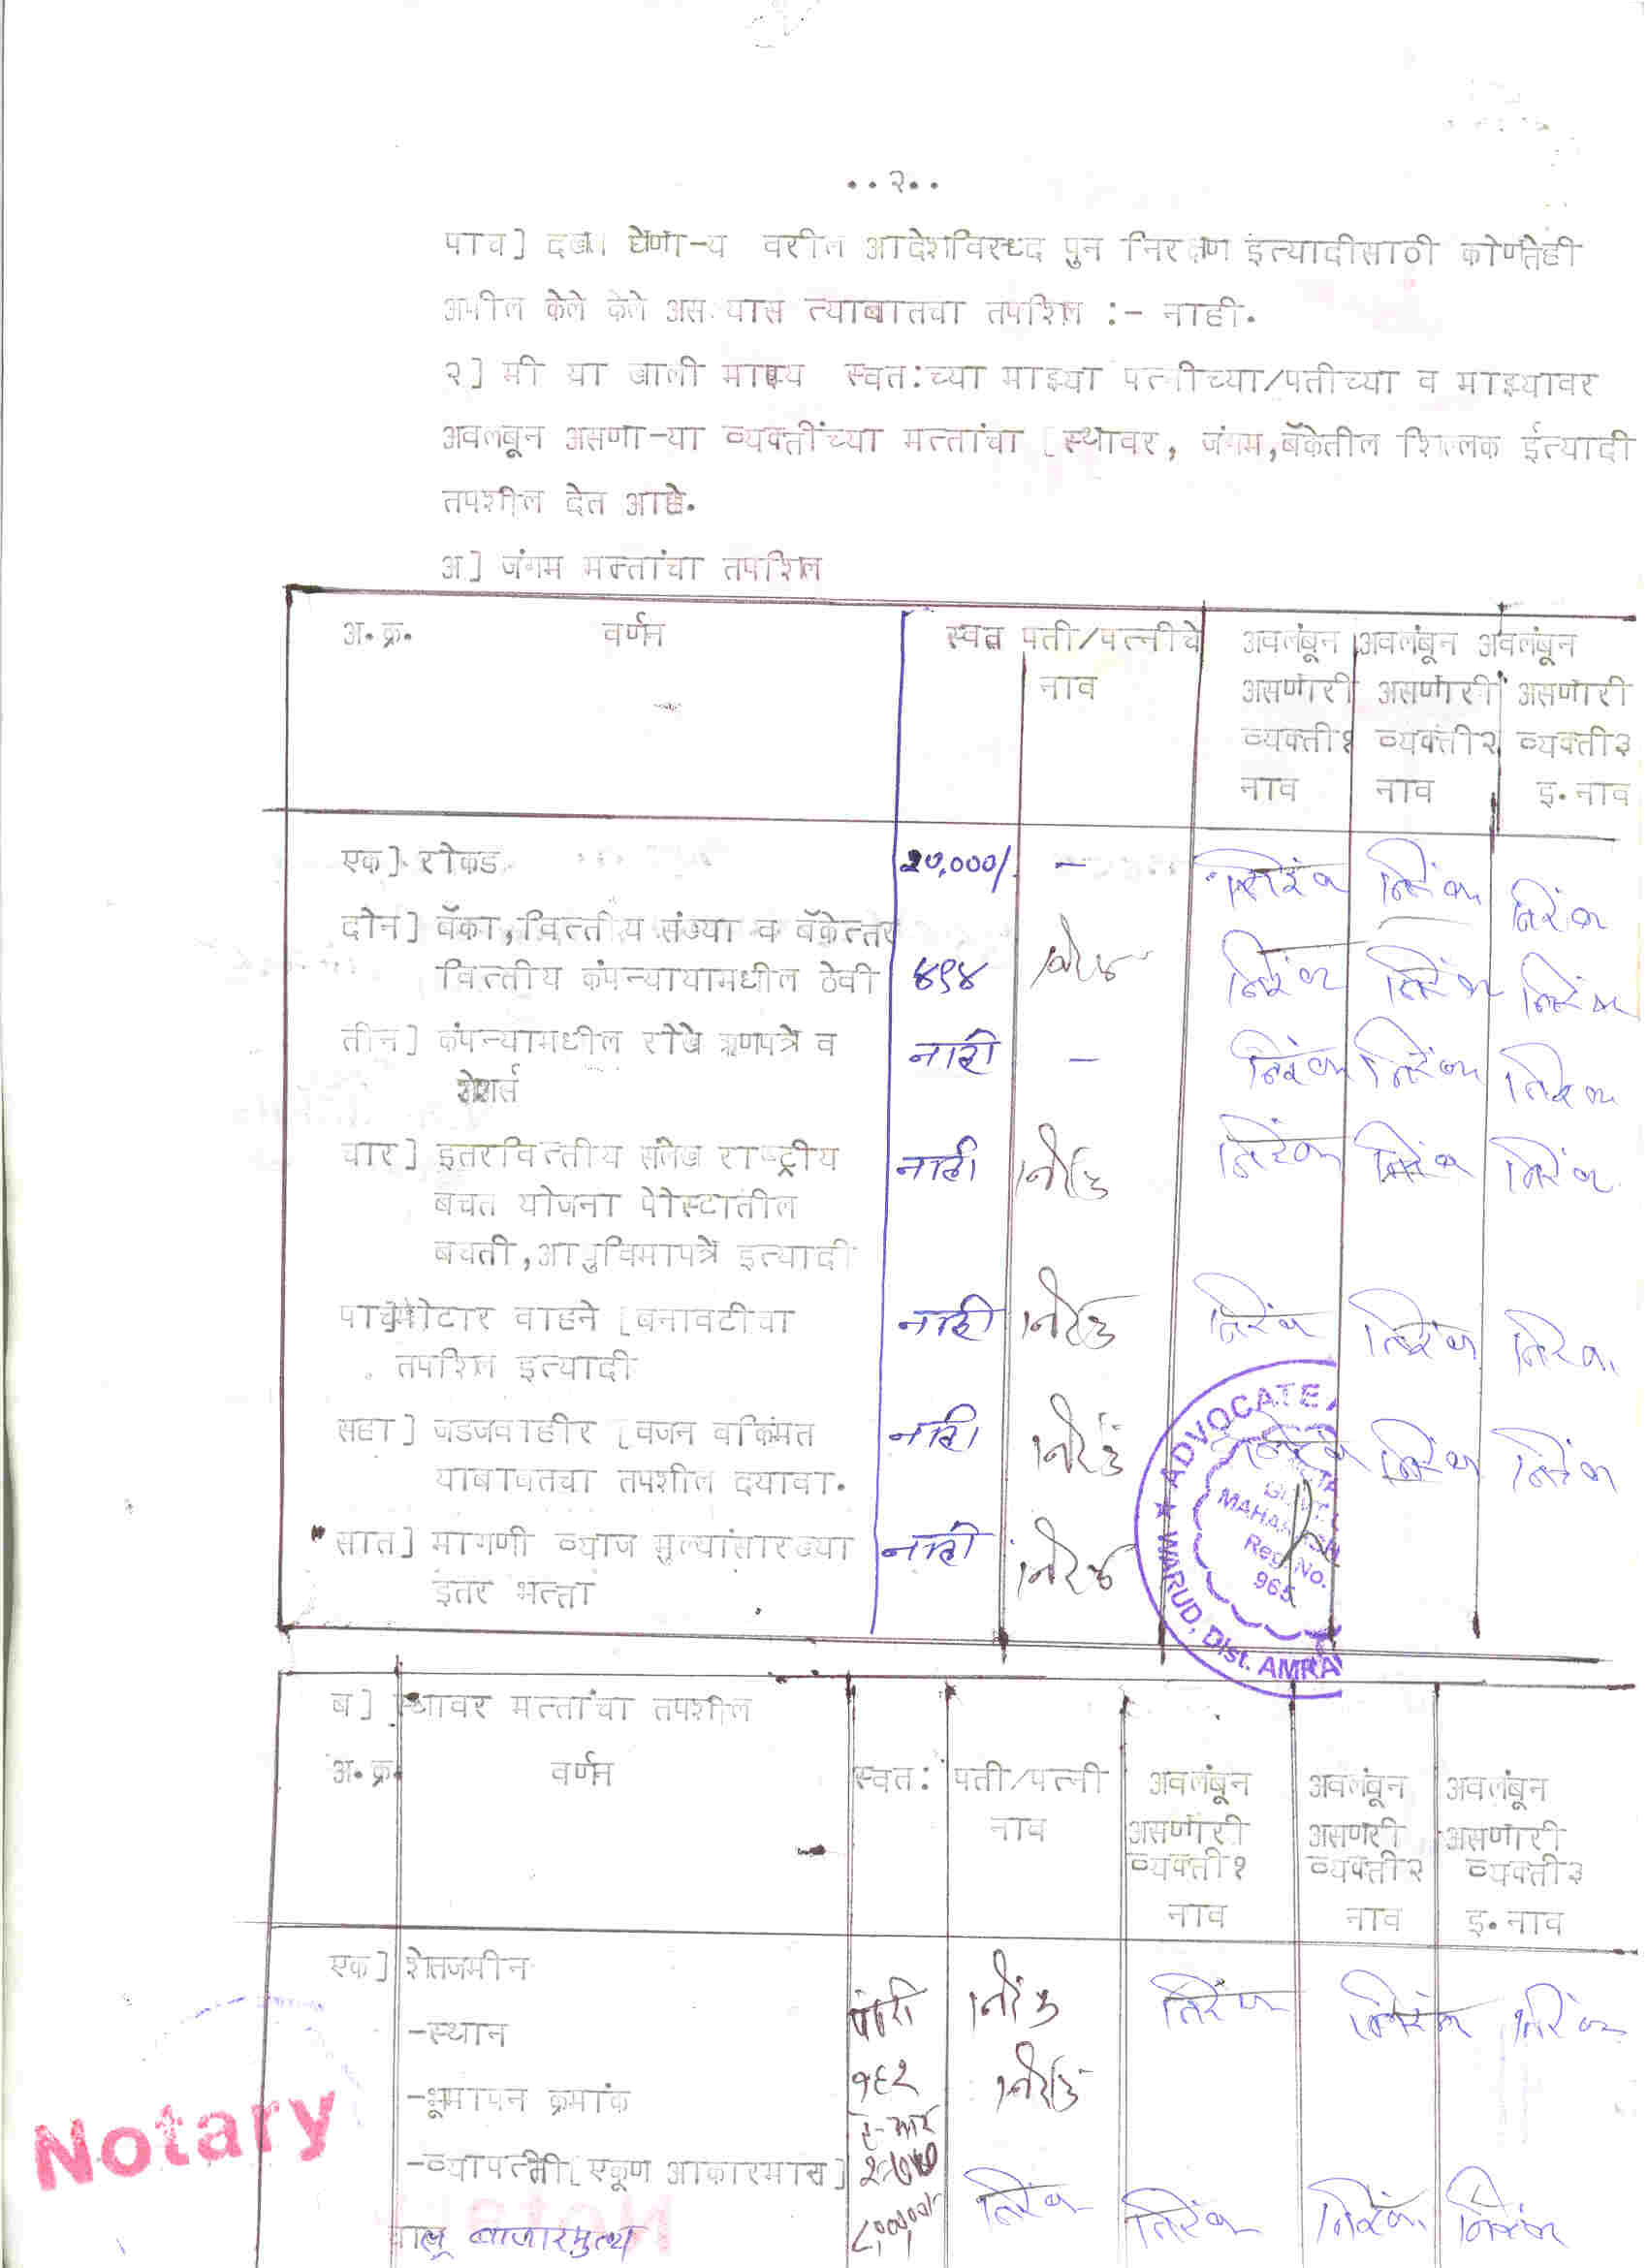 ..२..
पाच] दखल घेणा-य वरील आदेशविरुध्द पुन निरक्षण इत्यादीसाठी कोणतेही
अपील केले केले अस यास त्याबातचा तपशिल :- नाही.
२] मी या खाली माझ्य स्वत:च्या माझ्या पत्नीच्या/पतीच्या व माझ्यावर
अवलंबून असणा-या व्यक्तींच्या मत्तांचा [स्थावर, जंगम,बॅकेतील शिल्लक ईत्यादी
तपशील देत आहे.
अ] जंगम मत्तांचा तपशिल
अ.क्र. वर्णन स्वत पती/पत्नीचे अवलंबून अवलंबून अवलंबून
नाव असणारी असणारी असणारी
व्यक्ती१ व्यक्ती२ व्यक्ती३
नाव नाव इ.नाव
एक] रोकड २०,000/. - निरंक निरंक निरंक
दोन] बॅका,वित्तीय संस्था व बॅकेत्तर
वित्तीय कंपन्यायामधील ठेवी ४९४ निरंक निरंक निरंक निरंक
तीन] कंपन्यामधील रोखे ऋणपत्रे व नाही - निरंक निरंक निरंक
शेअर्स
चार] इतरवित्तीय संलेख राष्ट्रीय नाही निरंक निरंक निरंक निरंक
बचत योजना पोस्टातील
बचती,आयुविमापत्रे इत्यादी
पाच]मोटार वाहने [बनावटीचा नाही निरंक निरंक निरंक निरंक
तपशिल इत्यादी
सहा] जडजवाहीर [वजन वकिंमत नाही निरंक निरंक निरंक निरंक
याबाबतचा तपशील दयावा.
सात] मागणी व्याज मुल्यांसारख्या नाही निरंक
इतर भत्ता
ADVOCATE
MAHA
Reg. No.
965
WARUD, Dist. AMRA
ब] स्थावर मत्तांचा तपशील
अ.क्र. वर्णन स्वत: पती/पत्नी अवलंबून अवलंबून अवलंबून
नाव असणारी असणारी असणारी
व्यक्ती१ व्यक्ती२ व्यक्ती३
नाव नाव इ.नाव
एक] शेतजमीन
-स्थान निरंक निरंक निरंक निरंक
-भूमापन क्रमांक १६२ निरंक
-व्यापत्ती[एकूण आकारमाच]
चालू बाजारमुल्य निरंक निरंक निरंक निरंक
Notary